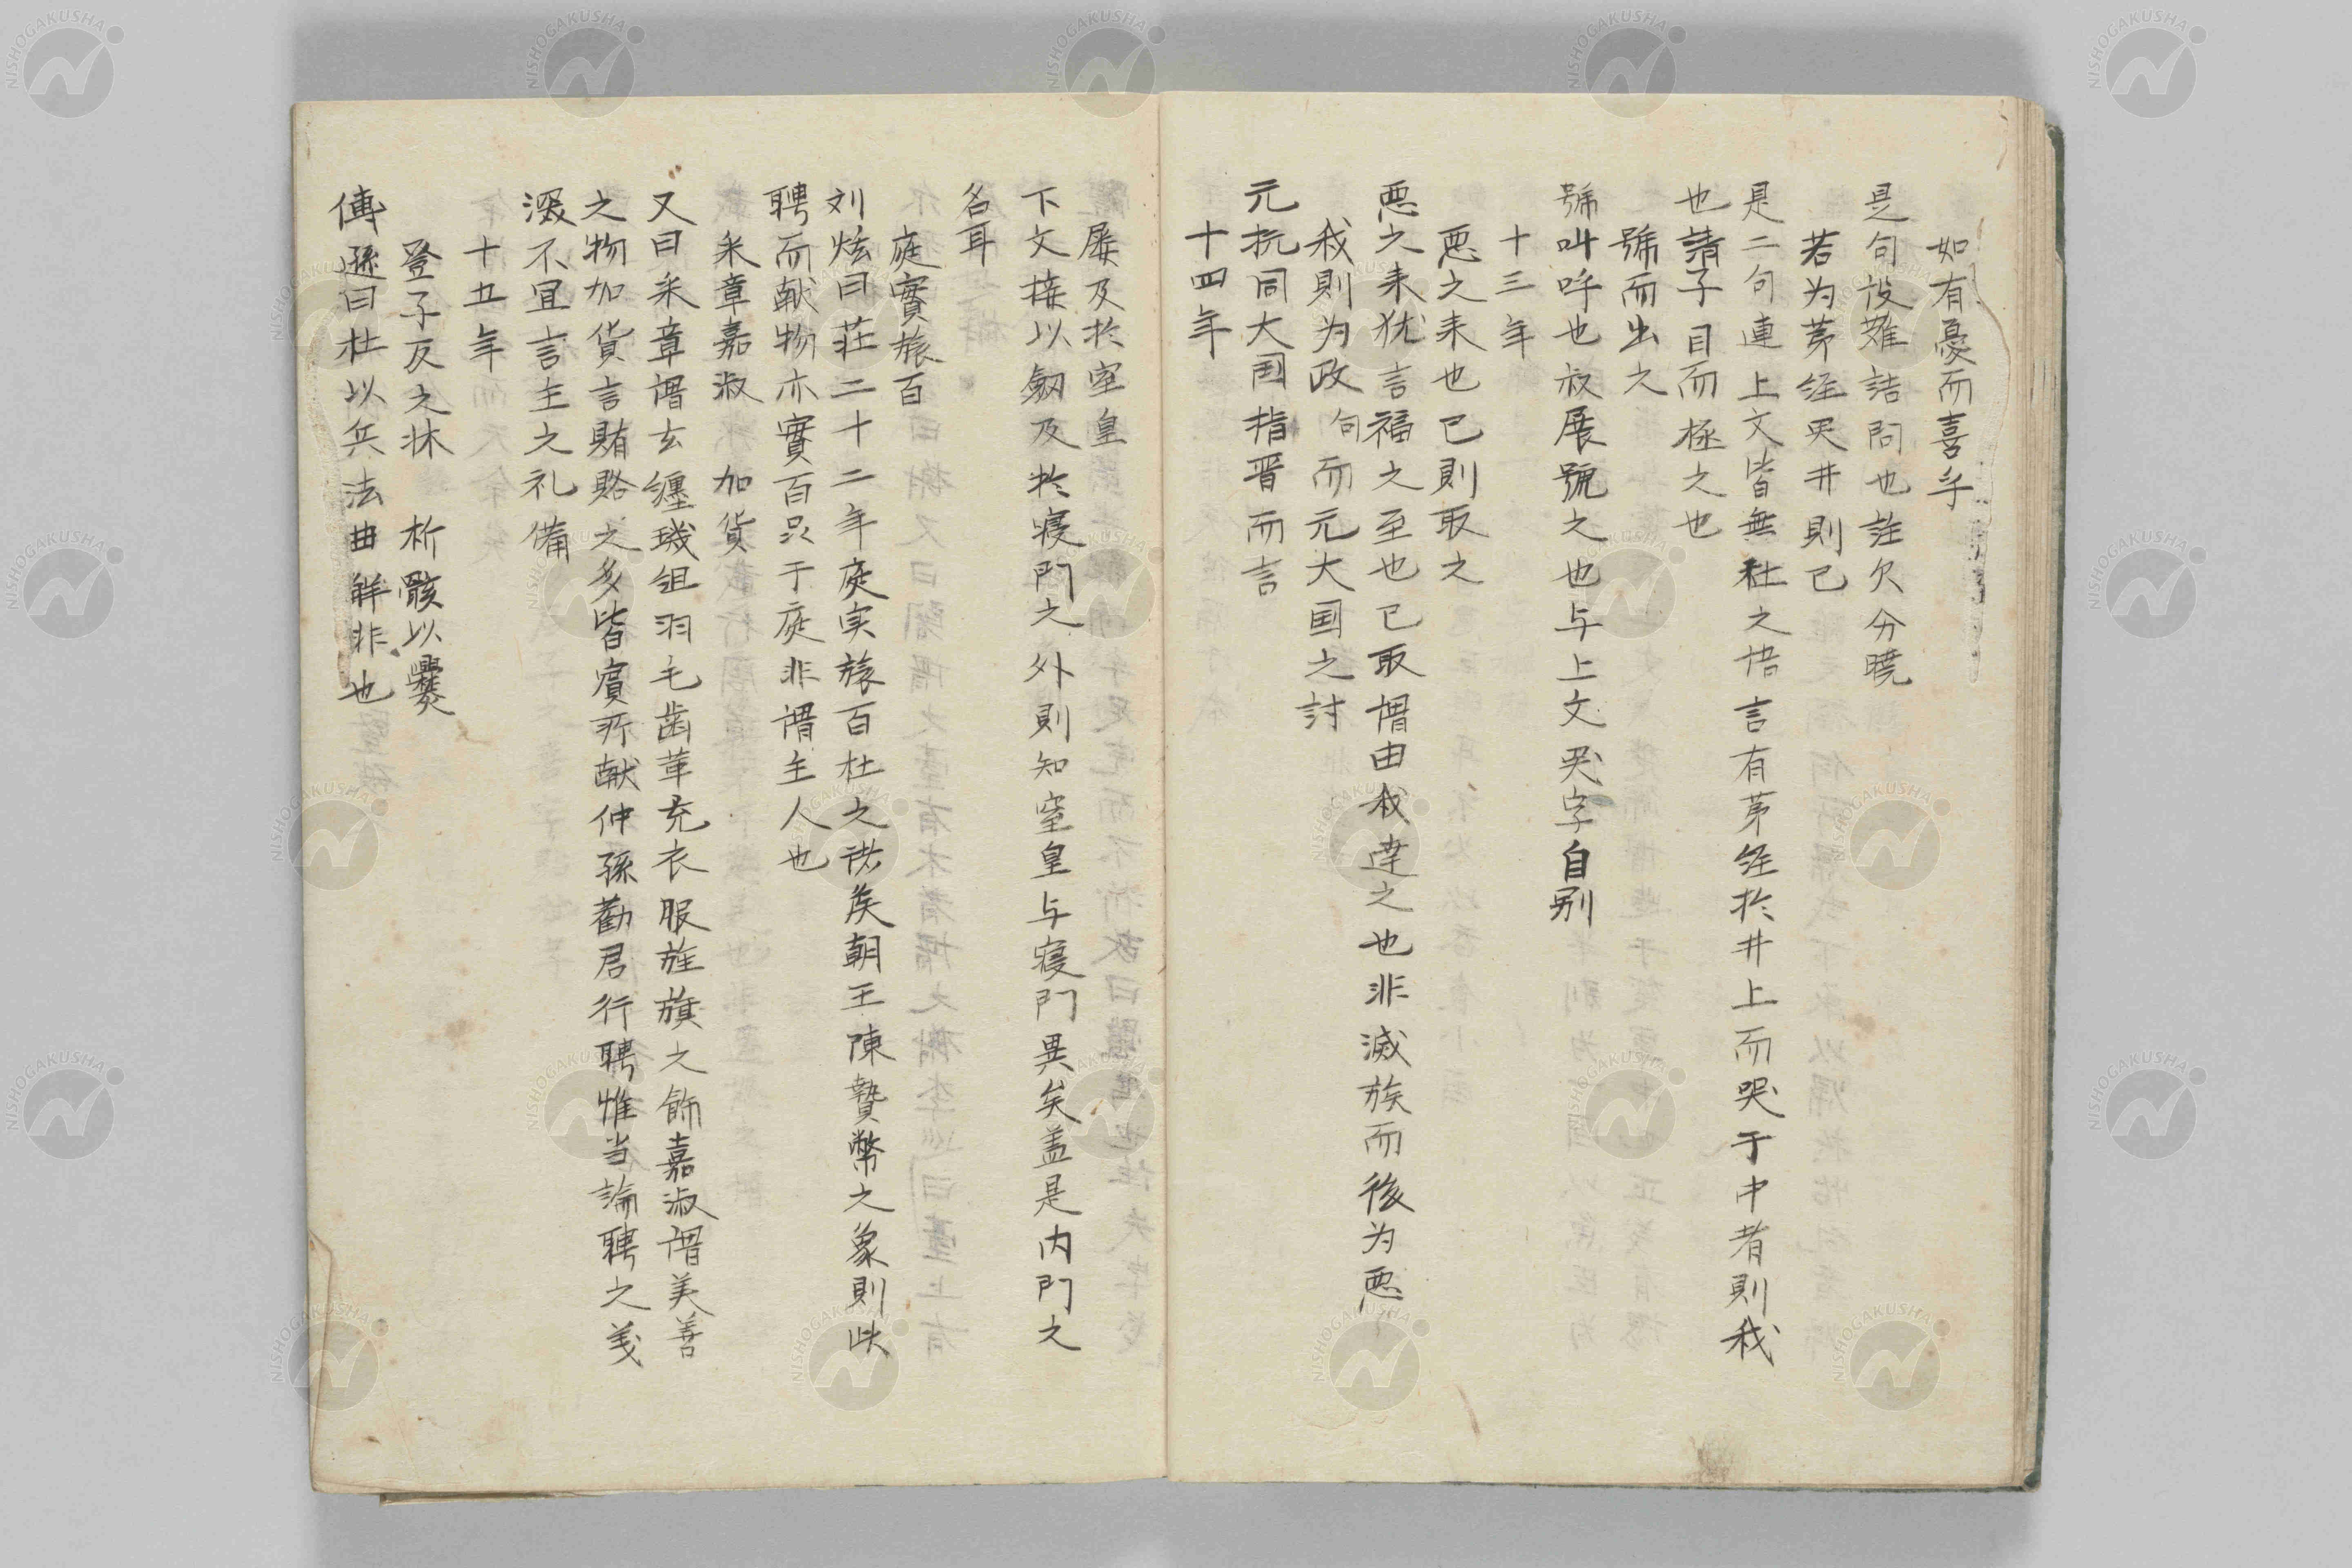 如有憂而喜乎
是句設難詰問也註欠分曉
若为茅絰哭井則已
是二句連上文皆無社之悟言有茅絰於井上而哭于中者則我
也請子目而極之也
號而出之
號叫呼也叔展號之也与上文哭字自别
十三年
悪之来也已則取之
悪之来犹言福之至也已取謂由我達之也非滅族而後为悪
我則为政句而元大国之討
元抗同大国指晋而言
十四年
屨及於窒皇
下文接以劔及於寝門之外則知窒皇与寝門異矣盖是内門之
名耳
庭實旅百
刘炫曰莊二十二年庭実旅百杜之諸矦朝王陳贄幣之象則此
聘而献物亦實百品于庭非謂主人也
采章嘉淑 加貨
又曰采章謂玄纁璣組羽毛齒革充衣服旌旗之飾嘉淑謂美善
之物加貨言賄賂之多皆賓所献仲孫勸君行聘惟当論聘之义
深不宜言主之礼備
十五年
登子反之牀 析骸以爨
傅遜曰杜以兵法曲解非也